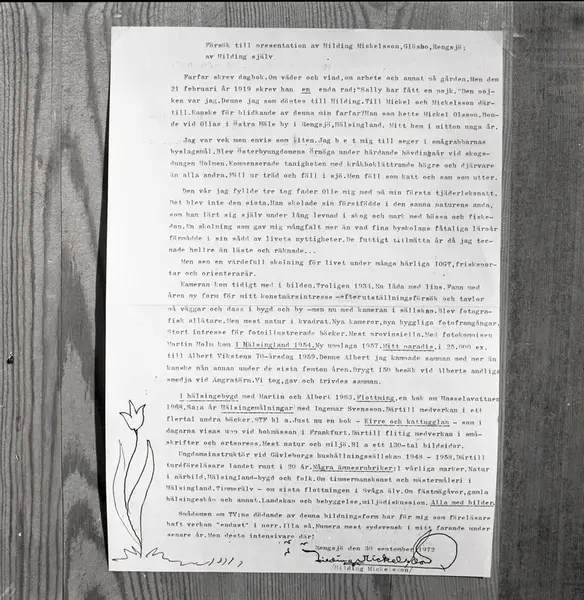 Försök till presentation av Hilding Mickelsson,Glösbo,Rengsjö;
av Hilding själv
Farfar skrev dagbok.Om väder och vind,om arbete och annat på gården.Men den
21 februari år 1919 skrev han en enda rad;"Sally har fått en pojk."Den poj-
ken var jag.Denne jag som döptes till Hilding.Till Mickel och Mickelsson där-
till.Kanske för blidkande av denna min farfar?Han som hette Mickel Olsson.Bon-
de vid Ollas i Östra Höle by i Rengsjö,Hälsingland.Mitt hem i nitton unga år.
Jag var vek men envis som liten.Jag b e t mig till seger i smågrabbarnas
byslagsmål.Blev Österbyungdomens Örnöga under hårdande hövdingaår vid skogs-
dungen Holmen.Kompenserade tanigheten med kråkboklättrande högre och djärvare
än alla andra.Föll ur träd och föll i sjö.Men föll som katt och sam som utter.
Den vår jag fyllde tre tog fader Olle mig med på min första tjäderleksnatt.
Det blev inte den sista.Han skolade sin förstfödde i den sanna naturens anda,
som han lärt sig själv under lång levnad i skog och mark med bössa och fiske-
don.En skolning som gav mig mångfalt mer än vad fina byskolans fåtaliga läroår
förmådde i sin sådd av livets nyttigheter. De futtigt tillmätta år då jag tec-
nade hellre än läste och räknade...
Men sen en värdefull skolning för livet under många härliga IOGT,friskspor-
tar och orienterarår.
Kameran kom tidigt med i bilden.Troligen 1934.En låda med lins.Fann med
åren ny form för mitt konstnärsintresse -efterutställningsförsök och tavlor
på väggar och dass i bygd och by -men nu med kameran i sällskap.Blev fotogra-
fisk allätare.Men mest natur i kvadrat.Nya kameror,nya bygliga fotoframgångar.
Stort intresse för fotoillustrerade böcker.Mest provinsiella.Med fotokompisen
Martin Holm kom I Hälsingland 1954.Ny upplaga 1957.Mitt paradis,i 25.000 ex.
till Albert Vikstens 70-årsdag 1959.Denne Albert jag kamade samman med mer än
kanske nån annan under de sista femton åren.Drygt 150 besök vid Alberts andliga
smedja vid Ängratörn.Vi teg,gav och trivdes samman.
I hälsingebygd med Martin och Albert 1963.Flottning,en bok om Hasselavattnen
1968.Så:a år Hälsingemålningar med Ingemar Svensson.Därtill medverkan i ett
flertal andra böcker.STF bl a.Just nu en bok - Kirre och kattugglan - som i
dagarna visas upp vid bokmässan i Frankfurt.Därtill flitig medverkan i små-
skrifter och ortspress.Mest natur och miljö.Bl a ett 130-tal bildsidor.
Ungdomsinstruktör vid Gävleborgs hushållningssällskap 1948 - 1958.Därtill
turéföreläsare landet runt i 20 år.Några ämnesrubriker:I vårliga marker.Natur
i närbild.Hälsingland-bygd och folk.Om timmermanskunst och mästermåleri i
Hälsingland.Timmerälv - om sista flottningen i Svåga älv.Om fästmögåvor,gamla
hälsingesbön och annat.Landskap och bebyggelse,miljödiskussion. Alla med bilder.
Spådomen om TV:ns dödande av denna bildningsform har för mig som föreläsare
haft verkan "endast" i norr.Illa så.Numera mest sydsvensk i mitt farande under
senare år.Men desto intensivare där!
Rengsjö den 30 september 1972
Hilding Mickelsson
/Hilding Mickelsson/